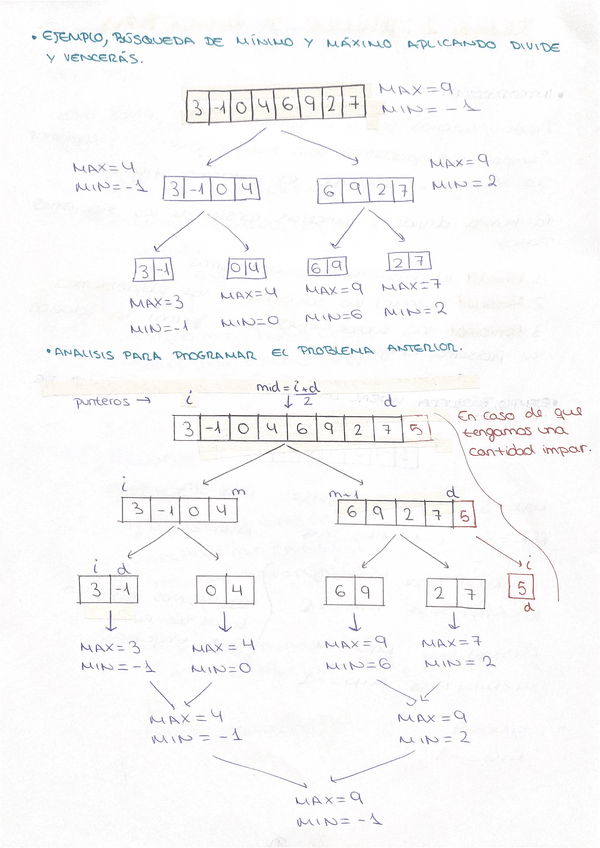 • EJEMPLO, BÚSQUEDA DE MÍNIMO Y MÁXIMO APLICANDO DIVIDE
Y VENCERÁS.
3 -1 0 4 6 9 2 7
MAX=9
MIN=-1
MAX=4
MIN=-1
3 -1 0 4
6 9 2 7
MAX=9
MIN=2
3 -1
0 4
6 9
2 7
MAX=3
MIN=-1
MAX=4
MIN=0
MAX=9
MIN=6
MAX=7
MIN=2
• ANALISIS PARA PROGRAMAR EL PROBLEMA ANTERIOR.
punteros → i
mid = i+d
2
d
3 -1 0 4 6 9 2 7 5
En caso de que
tengamos una
cantidad impar.
i
m
3 -1 0 4
m+1
d
6 9 2 7 5
i d
3 -1
0 4
6 9
2 7
i
5
d
MAX=3
MIN=-1
MAX=4
MIN=0
MAX=9
MIN=6
MAX=7
MIN=2
MAX=4
MIN=-1
MAX=9
MIN=2
MAX=9
MIN=-1